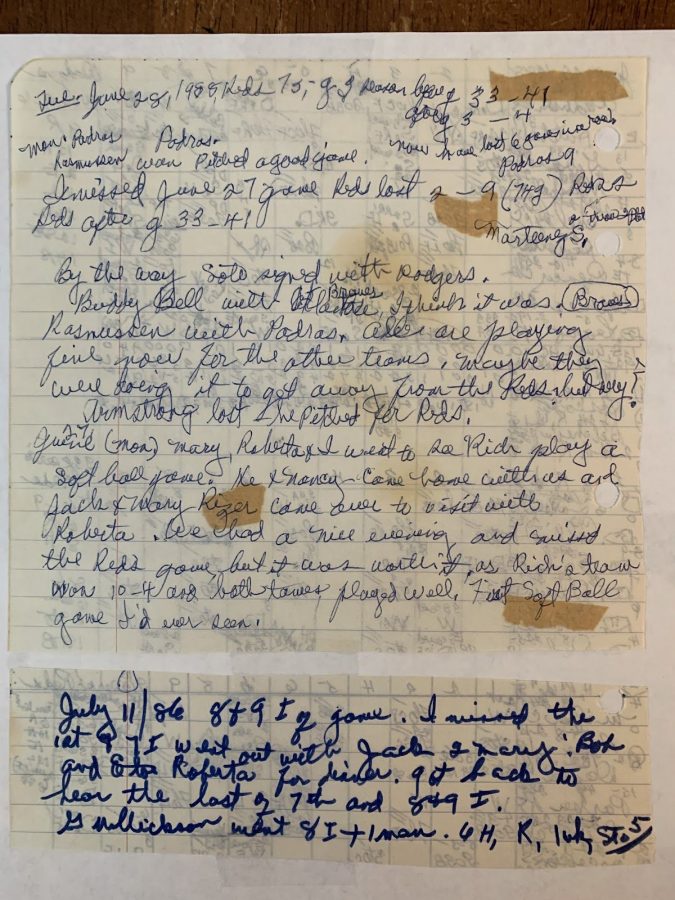 Tue. June 28, 1988, Reds 75, g of season before g 33-41
after g 3 - 4
Mon. Padres Padres. now have lost 6 games in a row
Rasmussen won Pitched a good game. Padres 9
I missed June 27 game Reds lost 2 - 9 (74g) Reds 2
Reds after g 33-41
Marteenez S.
By the way Soto signed with Dodgers.
Buddy Bell with Braves, I think it was. (Braves)
Rasmussen with Padras. All are playing
fine now for the other teams. Maybe they
were doing it to get away from the Reds. but why?
Armstrong lost. He Pitched for Reds.
(mon) Mary, Roberta & I went to see Rich play a
Soft ball game. He & Nancy came home with us and
Jack & Mary Rizer came over to visit with
Roberta. We had a nice evening and missed
the Reds game but it was worth it, as Rich's team
won 10-4 and both teams played well. First Soft Ball
game I'd ever seen.
July 11/86 8+9 I of game. I missed the
1st 7 I went out with Jack & Mary, Bob
and Roberta for dinner. got back to
hear the last of 7th and 8+9 I.
Gullickson went 8 I + 1 man. 6 H, K, 1 wk, St. 5